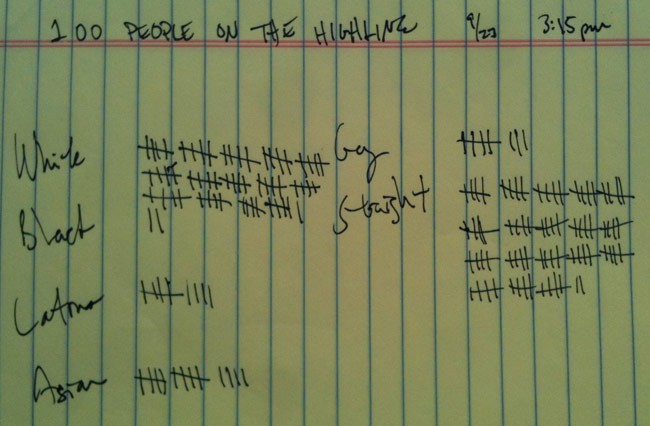 100 PEOPLE ON THE HIGHLINE 9/23 3:15pm
White
Gay
Straight
Black
Latino
Asian